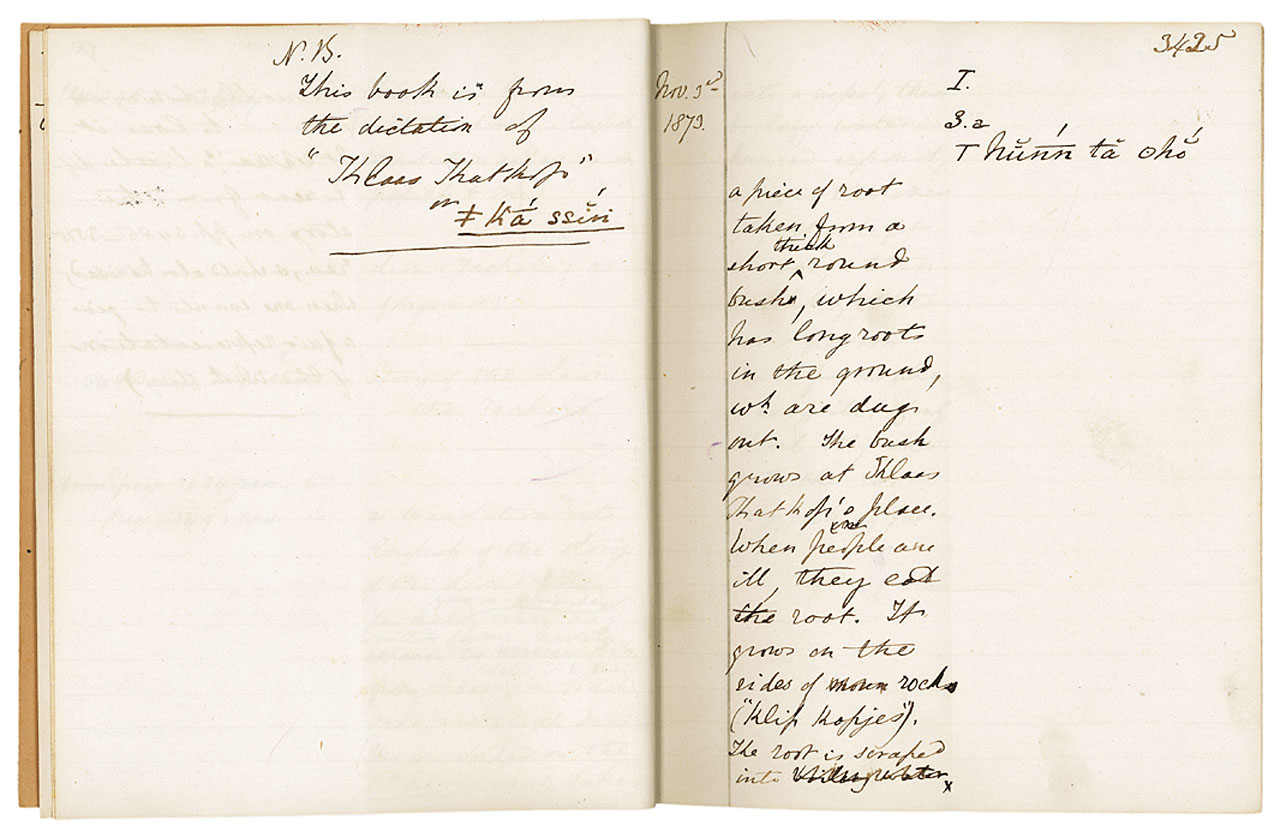 N.B.
This book is from
the dictation of
"Klaas Katkop"
or ǂKá ssĭn
3425
Nov. 3rd
1873.
I.
3.a
Nŭnń tă Ohŏ́
a piece of root
taken from a
thick
short ‸ round
bush, which
has long roots
in the ground,
wh. are dug
out. The bush
grows at Klaas
Katkop's place.
When people are
ill, they eat
the root. It
grows on the
sides of rocks
("Klip Kopjes").
The root is scraped
into water x